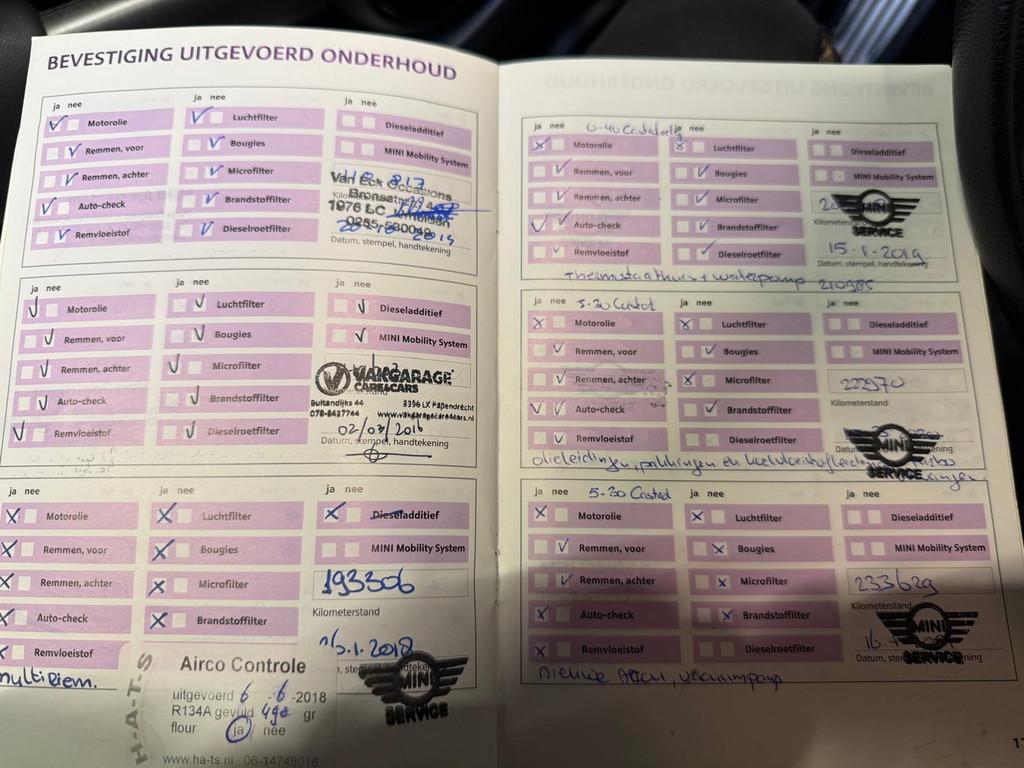 BEVESTIGING UITGEVOERD ONDERHOUD
ja nee
ja nee
ja nee
Motorolie
Luchtfilter
Dieseladditief
Remmen, voor
Bougies
MINI Mobility System
Remmen, achter
Microfilter
Van Eck Occasions
Auto-check
Brandstoffilter
1976 LC
Remvloeistof
Dieselroetfilter
Datum, stempel, handtekening
ja nee
ja nee
ja nee
Motorolie
Luchtfilter
Dieseladditief
Remmen, voor
Bougies
MINI Mobility System
Remmen, achter
Microfilter
VAKGARAGE
CARE4CARS
Auto-check
Brandstoffilter
Buitendijks 44
3356 LX Papendrecht
www.vakgaragecare4cars.nl
Remvloeistof
Dieselroetfilter
02/03/2016
Datum, stempel, handtekening
ja nee
ja nee
ja nee
Motorolie
Luchtfilter
Dieseladditief
Remmen, voor
Bougies
MINI Mobility System
Remmen, achter
Microfilter
193306
Auto-check
Brandstoffilter
Kilometerstand
Remvloeistof
16.1.2018
multiriem.
MINI
SERVICE
H-A-T-S
Airco Controle
uitgevoerd 6 -6-2018
R134A gevuld 490 gr
flour ja nee
www.ha-ts.nl 06-14748016
ja nee
ja nee
ja nee
Motorolie
Luchtfilter
Dieseladditief
Remmen, voor
Bougies
MINI Mobility System
Remmen, achter
Microfilter
MINI
SERVICE
Auto-check
Brandstoffilter
Kilometerstand
15-1-2019
Remvloeistof
Dieselroetfilter
Datum, stempel, handtekening
Thermostaathuis + waterpomp 210985
ja nee
5-30 Castrol
ja nee
ja nee
Motorolie
Luchtfilter
Dieseladditief
Remmen, voor
Bougies
MINI Mobility System
Remmen, achter
Microfilter
222970
Auto-check
Brandstoffilter
Kilometerstand
Remvloeistof
Dieselroetfilter
MINI
SERVICE
olieleidingen, pakkingen en koelvloeistofleiding
ja nee
5-30 Castrol
ja nee
ja nee
Motorolie
Luchtfilter
Dieseladditief
Remmen, voor
Bougies
MINI Mobility System
Remmen, achter
Microfilter
233629
Auto-check
Brandstoffilter
Kilometerstand
Remvloeistof
Dieselroetfilter
MINI
SERVICE
Nieuwe Accu, vacuumpomp